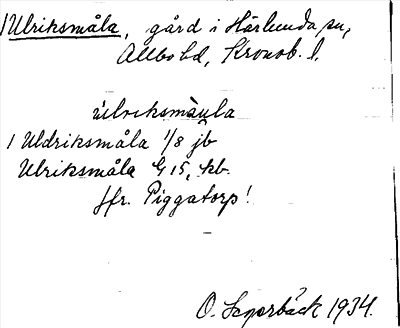 1 Ulriksmåla, gård i Härlunda sn,
Allbo hd, Kronob. l.
ùlriksmàula
1 Uldriksmåla 1/8 jb
Ulriksmåla G 15, kb.
jfr. Piggatorp!
O. 1934.